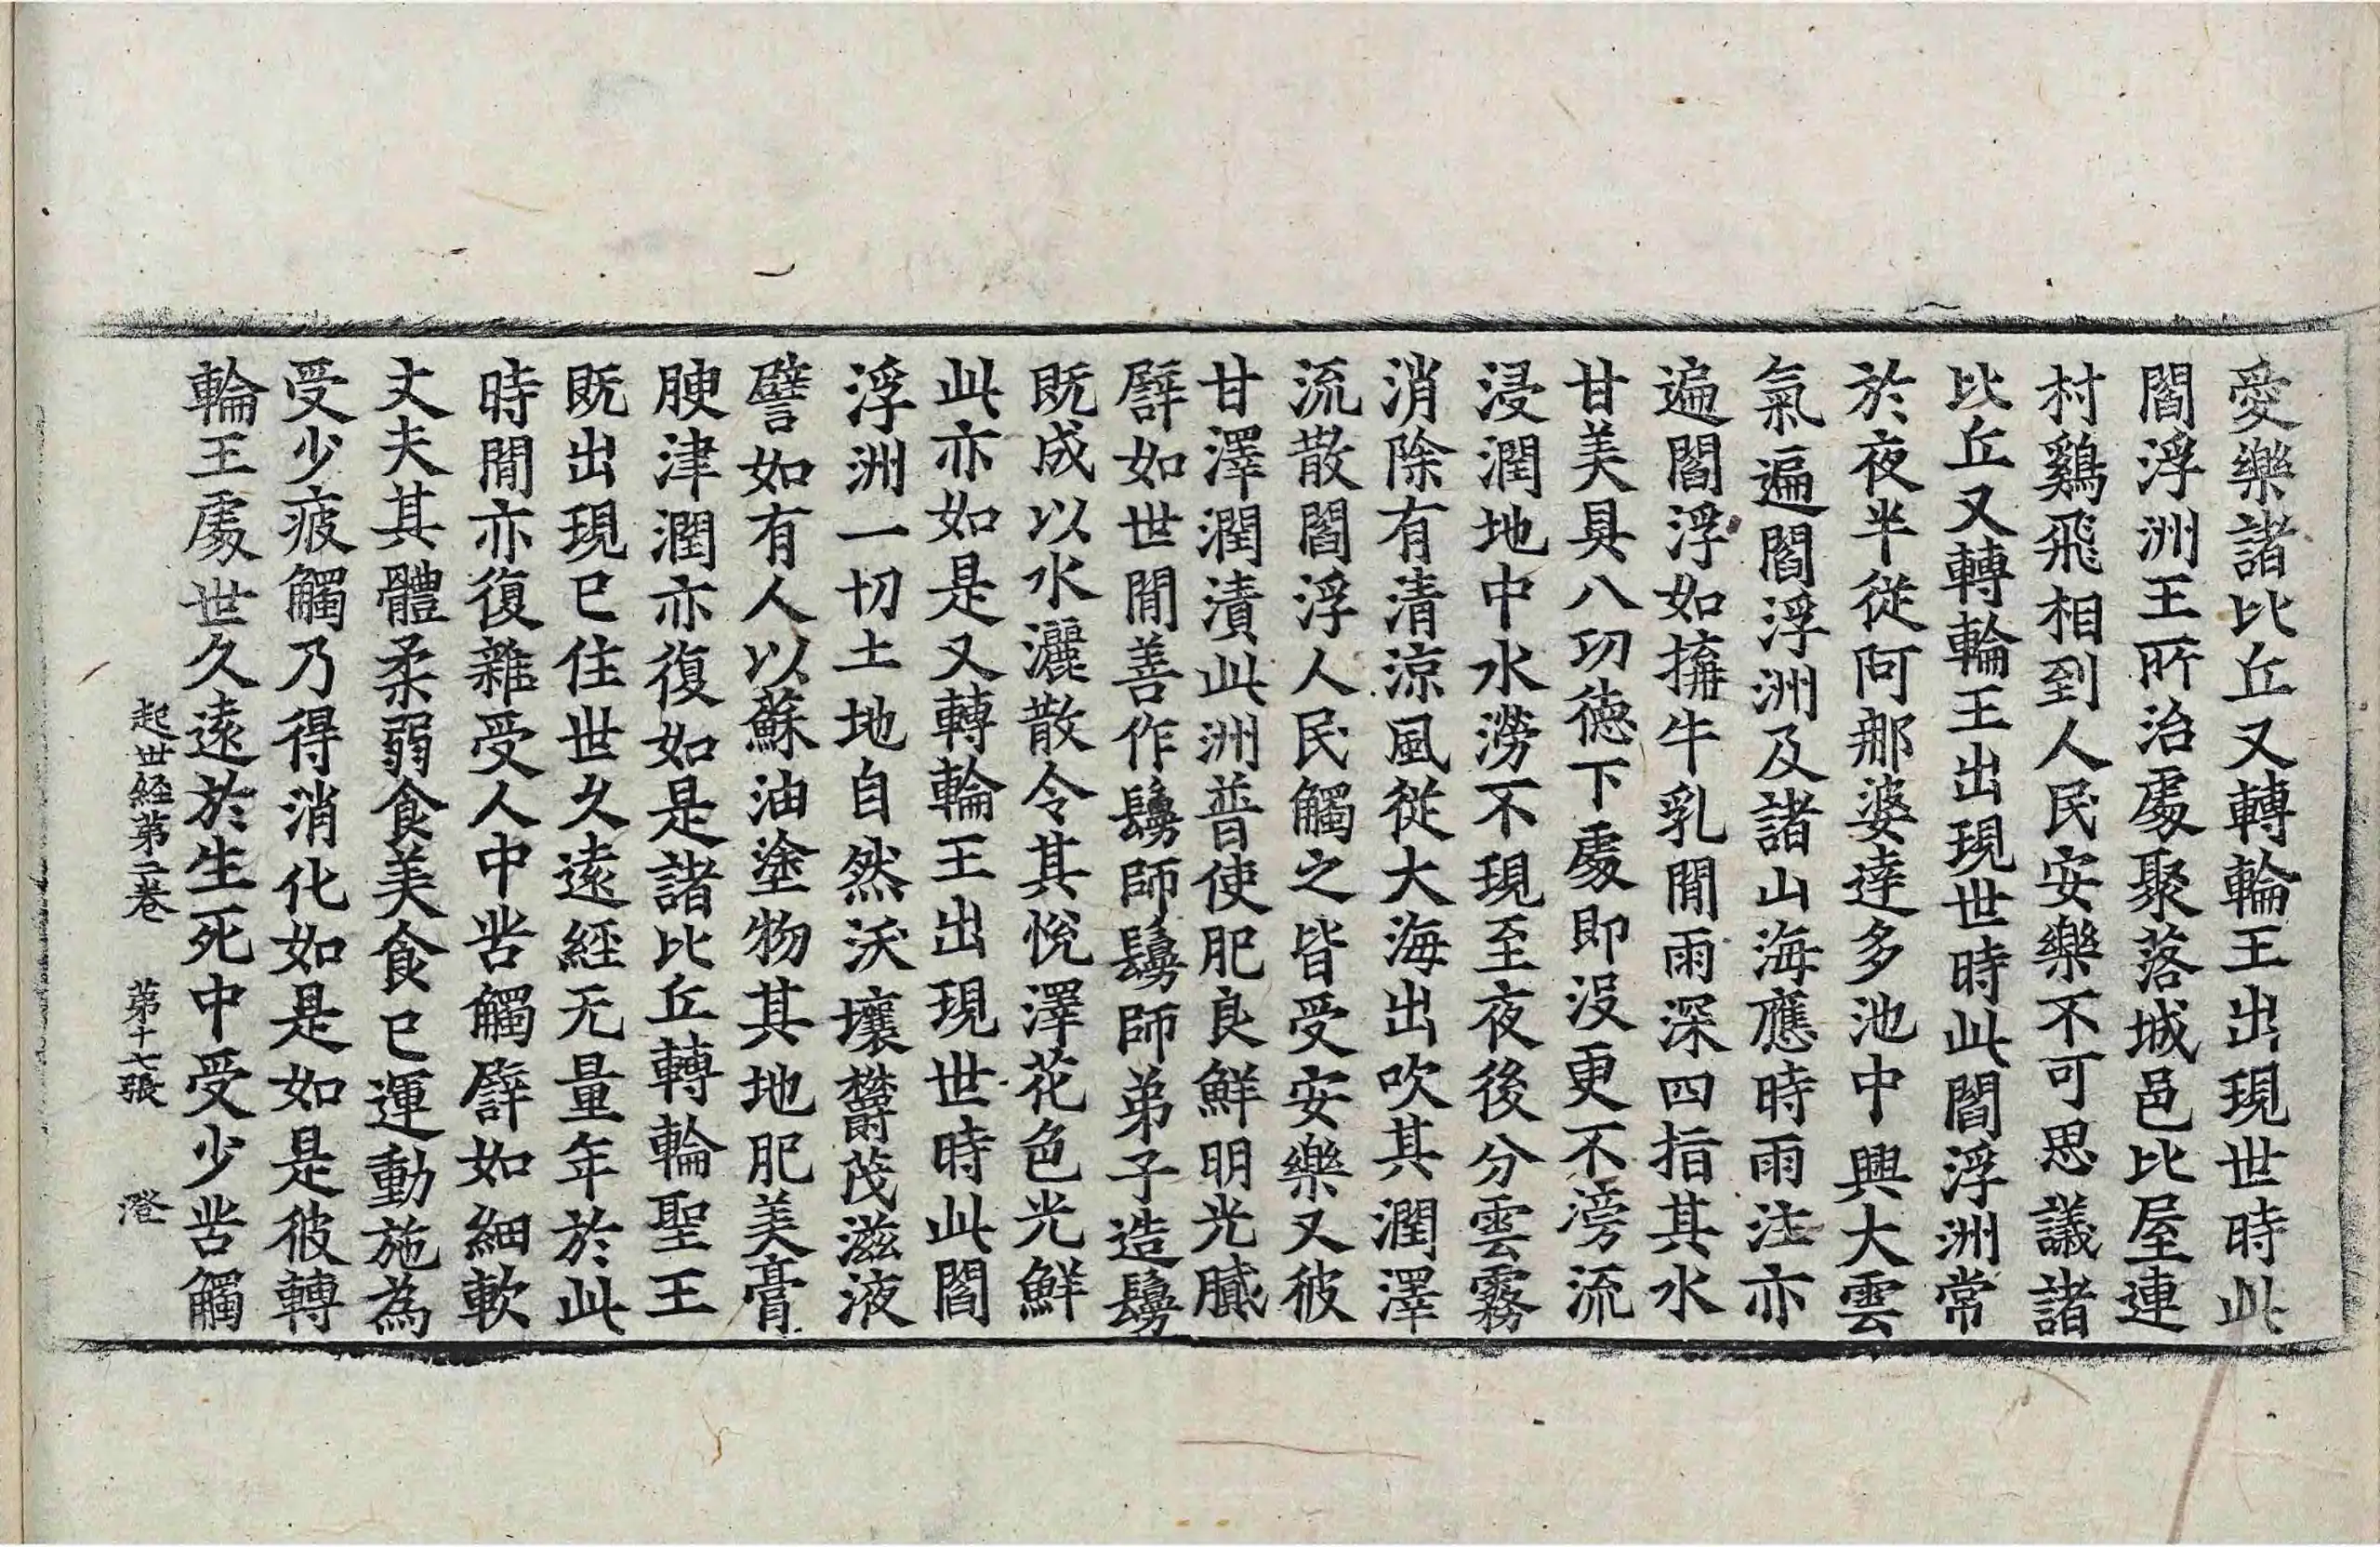 愛樂諸比丘又轉輪王出現世時此
閻浮洲王所治處聚落城邑比屋連
村鷄飛相到人民安樂不可思議諸
比丘又轉輪王出現世時此閻浮洲常
於夜半從阿那婆達多池中興大雲
氣遍閻浮洲及諸山海應時雨注亦
遍閻浮如㨍牛乳閒雨深四指其水
甘美具八功德下處即沒更不滂流
浸潤地中水澇不現至夜後分雲霧
消除有清涼風從大海出吹其潤澤
流散閻浮人民觸之皆受安樂又彼
甘澤潤漬此洲普使肥良鮮明光膩
譬如世閒善作鬘師鬘師弟子造鬘
既成以水灑散令其悅澤花色光鮮
此亦如是又轉輪王出現世時此閻
浮洲一切土地自然沃壤欝茂滋液
譬如有人以蘇油塗物其地肥美膏
腴津潤亦復如是諸比丘轉輪聖王
既出現已住世久遠經无量年於此
時閒亦復雜受人中苦觸譬如細軟
丈夫其體柔弱食美食已運動施為
受少疲觸乃得消化如是如是彼轉
輪王處世久遠於生死中受少苦觸
起世經第二卷 第十七張 澄